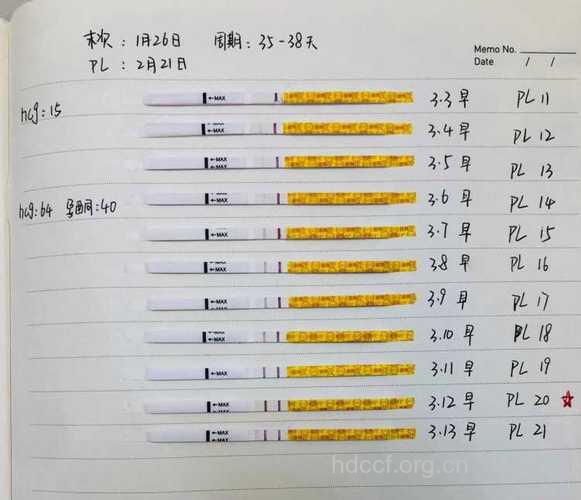 末次：1月26日 周期：35-38天
PL：2月21日
Memo No.
Date / /
←MAX 3.3 早 PL 11
hcg：15
←MAX 3.4 早 PL 12
←MAX 3.5 早 PL 13
←MAX 3.6 早 PL 14
hcg：64 孕酮：40
←MAX 3.7 早 PL 15
←MAX 3.8 早 PL 16
←MAX 3.9 早 PL 17
←MAX 3.10 早 PL 18
←MAX 3.11 早 PL 19
←MAX 3.12 早 PL 20
←MAX 3.13 早 PL 21
hdccf.org.cn